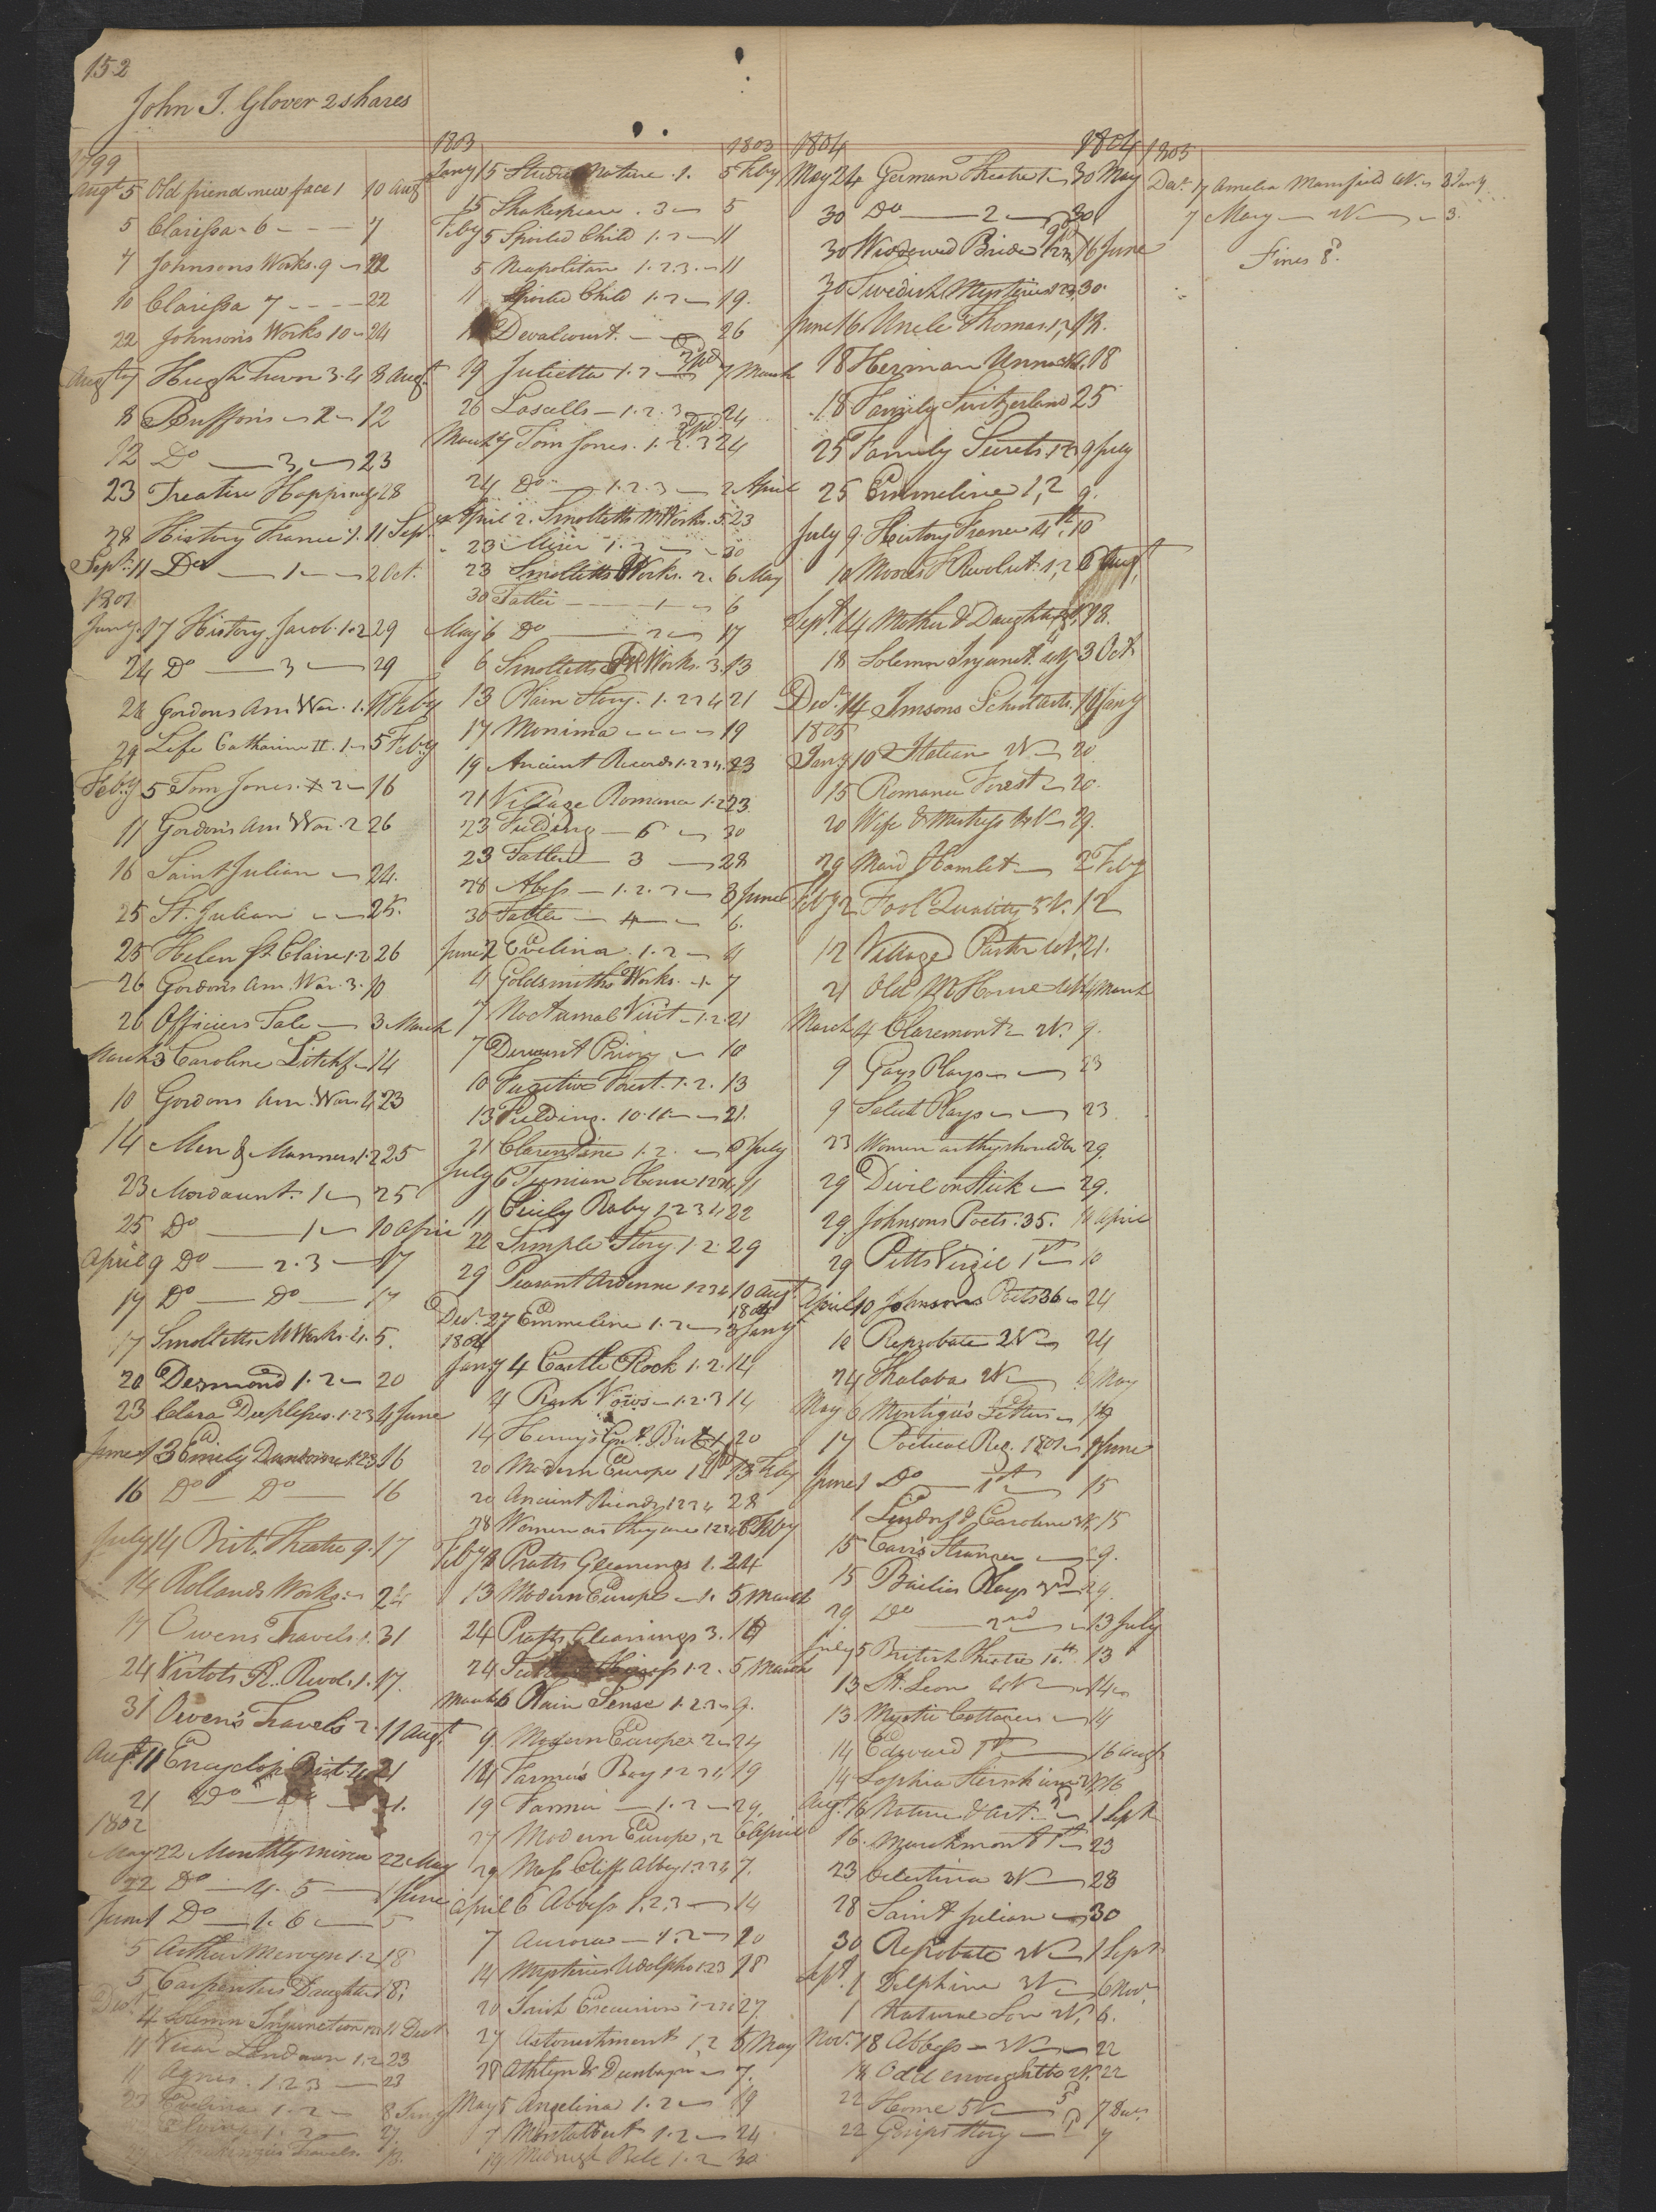 152
John J. Glover 2 shares
1799
Augt 5 Old friend new face 1 10 Augt
5 Clarissa - 6 - - - 7
7 Johnsons Works. 9 - 22
10 Clarissa 7 - - - - 22
22 Johnson's Works 10 - 24
Hugh 3. 4 8 Augt
8 Buffon's - 2 - 12
12 Do — 3 — 23
23 Treatise Happiness 28
28 History France 1. 11 Sept.
Sept. 11 Do — 1 - - 2 Oct.
1801
Jany. 17 History Jacob. 1.2 29
24 Do — 3 — 29
24 Gordons Am War. 1. 11 Feby
29 Life Catharine II. 1 - 5 Feby
Feby 5 Tom Jones. 2 - 16
11 Gordon's Am War. 2 26
16 Saint Julian - 24.
25 St. Julian - - 25.
25 Helen St Claire 1.2 26
26 Gordons Am. War. 3. 10
26 Officers Tale — 3 March
March 3 Caroline Litchf - 14
10 Gordons Am. War. 4 23
14 Men & Manners 1.2 25
23 Mordaunt. 1 - 25
25 Do — 1 - 10 April
April 9 Do — 2.3 — 17
17 Do — Do — 17
17 Smolletts M Works. 4. 5.
20 Desmond 1. 2 - 20
23 Clara Duplessis. 1.2.3 4 June
June 13 Emily 1.2.3 16
16 Do — Do — 16
July 14 Brit. Theatre 9. 17
14 Rollands Works
17 Owens Travels. 1. 31
24 Vertots R. Revol. 1. 17.
31 Owen's Travels 2. 11 Augt.
Augt. 11 Encyclop Brit. 4 21
21 Do
1802
May 22 Monthly mirror 22 May
22 Do — 4. 5 — 1 June
June 1 Do — 1. 6 — 5
5 Arthur Mervyn 1.2 18
5 Carpenters Daughter 18.
Dec. 4 Solemn Injunction 11 Dec
11 Vicar Landaun 1.2 23
11 Agnes. 1.2.3 — 23
23 Evelina 1. 2 - 8 Jany
1803 1803
Jany 15 Studies Nature. 1. 5 Feby
15 Shakespeare. 3 - 5
Feby 5 Spoiled Child 1. 2 - 11
5 Neapolitan 1. 2. 3. - 11
11 Spoiled Child 1. 2 - 19.
Devalcourt. - - 26
19 Julietta 1. 2 7 March
26 Lascells - 1. 2. 3 24
March 7 Tom Jones. 1. 2. 3 24
24 Do — 1. 2. 3 — 2 April
April 2. Smolletts M Works. 5. 23
23 1. 2 - 30
23 Smolletts Works. 2. 6 May
30 Tatler - - - 1 - 6
May 6 Do — 2 - 17
6 Smolletts Works. 3. 13
13 Plain Story. 1. 2 3 4 21
17 Monima - - - - 19
19 Ancient Records 1. 2 3 4. 23
21 Village Romance 1. 2 23
23 Fielding - 6 - 30
23 Tatler - 3 — 28
28 Abess - 1. 2. 3 - 8 June
30 Tatler - 4 - 6.
June 2 Evelina. 1. 2 - 4
4 Goldsmiths Works. 1. 7
7 Nocturnal Visit - 1. 2. 21
7 Derwent Priory - 10
10 Fugitive Forest. 1. 2. 13
13 Fielding. 10. 11 - - 21.
21 Clarentine 1. 2. - 6 July
July 6 House 1 2 3 4. 11
11 Cicily Raby 1 2 3 4 22
22 Simple Story. 1. 2. 29
29 Peasant Ardenne 1 2 3 4 10 Augt
1804
Dec. 27 Emmeline 1. 2 - 3 Jany
1804
Jany 4 Castle Rock 1. 2. 14
4 Rash Vows - 1. 2. 3 14
14 Henrys Grt. Brit 1, 20
20 Modern Europe 1 13 Feby
20 Ancient Records 1 2 3 4 28
28 Women as they are 1 2 3 4 8 Feby
Feby 8 Pratts Gleanings 1. 24
13 Modern Europe - 1. 5 March
24 Pratts Gleanings 3.
24 1. 2. 5 March
March 6 Plain Sense 1. 2. 3 - 9.
9. Modern Europe 2 - 24
14 Farmer's Boy 1 2 3 4 19
19 Fannie - 1. 2 - 29.
27 Modern Europe, 2 6 April
29 Moss Cliff Abbey 1. 2 3 4 7.
April 6 Abbess 1. 2. 3 — 14
7 Aurora - 1. 2 - 20
14 Mysteries Udolpho 1 2 3 18
20 Irish Excursion 1. 2 3 4 27.
27 Astonishment 1, 2 5 May
28 Athlyn & Dunbayne - 7.
May 5 Angelina 1. 2 - 19
7 Montalbert 1. 2 - 24
19 Midnight Bell 1. 2 30
1804 1804
May 24 German Theatre 1 - 30 May
30 Do — 2 — 30
30 Widowed Bride 1 2 3 16 June
30 Swedish Mysteries 1 2 3, 30.
June 16 Uncle Thomas. 1, 2 18.
18 Herman Unna 18
18 Family Switzerland 25
25 Family Secrets. 1 2 3 9 July
25 Emmeline 1, 2 9.
July 9. History France 4th, 10
10 Moores F Revolut. 1, 2 6 Augt.
Sept. 14 Mother & Daughter 18.
18 Solemn Injunct. 4V 3 Oct
Dec. 14 School Arts. 10 Jany
1805
Jany 10 Italian 2V - 20
15 Romance Forest - 20.
20 Wife & Mistress 4V - 29.
29 Maid Hamlet — 2 Feby
Feby 2 Fool Quality 5V. 12
12 Village Pastor 21.
21 Old M House 4V 4 March
March 4 Claremont - 2V. 9.
9 Gays Plays - - 23
9 Select Plays - - 23
23 Women as they should be 29.
29 Divil on Stick - 29.
29. Johnsons Poets. 35. 10 April
29 Pitts Virgil 1st - 10
April 10 Johnsons Poets 36 - 24
10 Reprobate 2V - 24
24 Thalaba 2V - 6 May
May 6 Montague's Letters - 17
17 Poetical Reg. 1801 - 1 June
June 1 Do — 1st — 15
1 Lindorf & Caroline 3V, 15
15 Stranger - 29.
15 Bailies Plays 3rd - 29.
29. Do — 2nd - 13 July
July 5 British Theatre 10th. 13
13 St. Leon 4V - 14
13. Mystic Cottagers - 14
14 Edward 1st — 16 Augt
14 Sophia Sternheim 2V, 16
Augt. 16 Nature & Art. - 1 Sept
16. Marchmont 1st - 23
23 Celestina 3V — 28
28 Saint Julian - 30
30 Reprobate 2V - 1 Sept
Sept. 1 Delphine 3V - 6 Nov.
1 Natural Son 2V, 6.
Nov. 18 Abbess - 3V - 22
14 Odd enough 2V. 22
22 Home 5V 7 Dec.
22 Story 7
1805
Dec. 7 Amelia Mansfield 4V. - 3 Jany
7 Mary — 2V - 3.
Fines 8